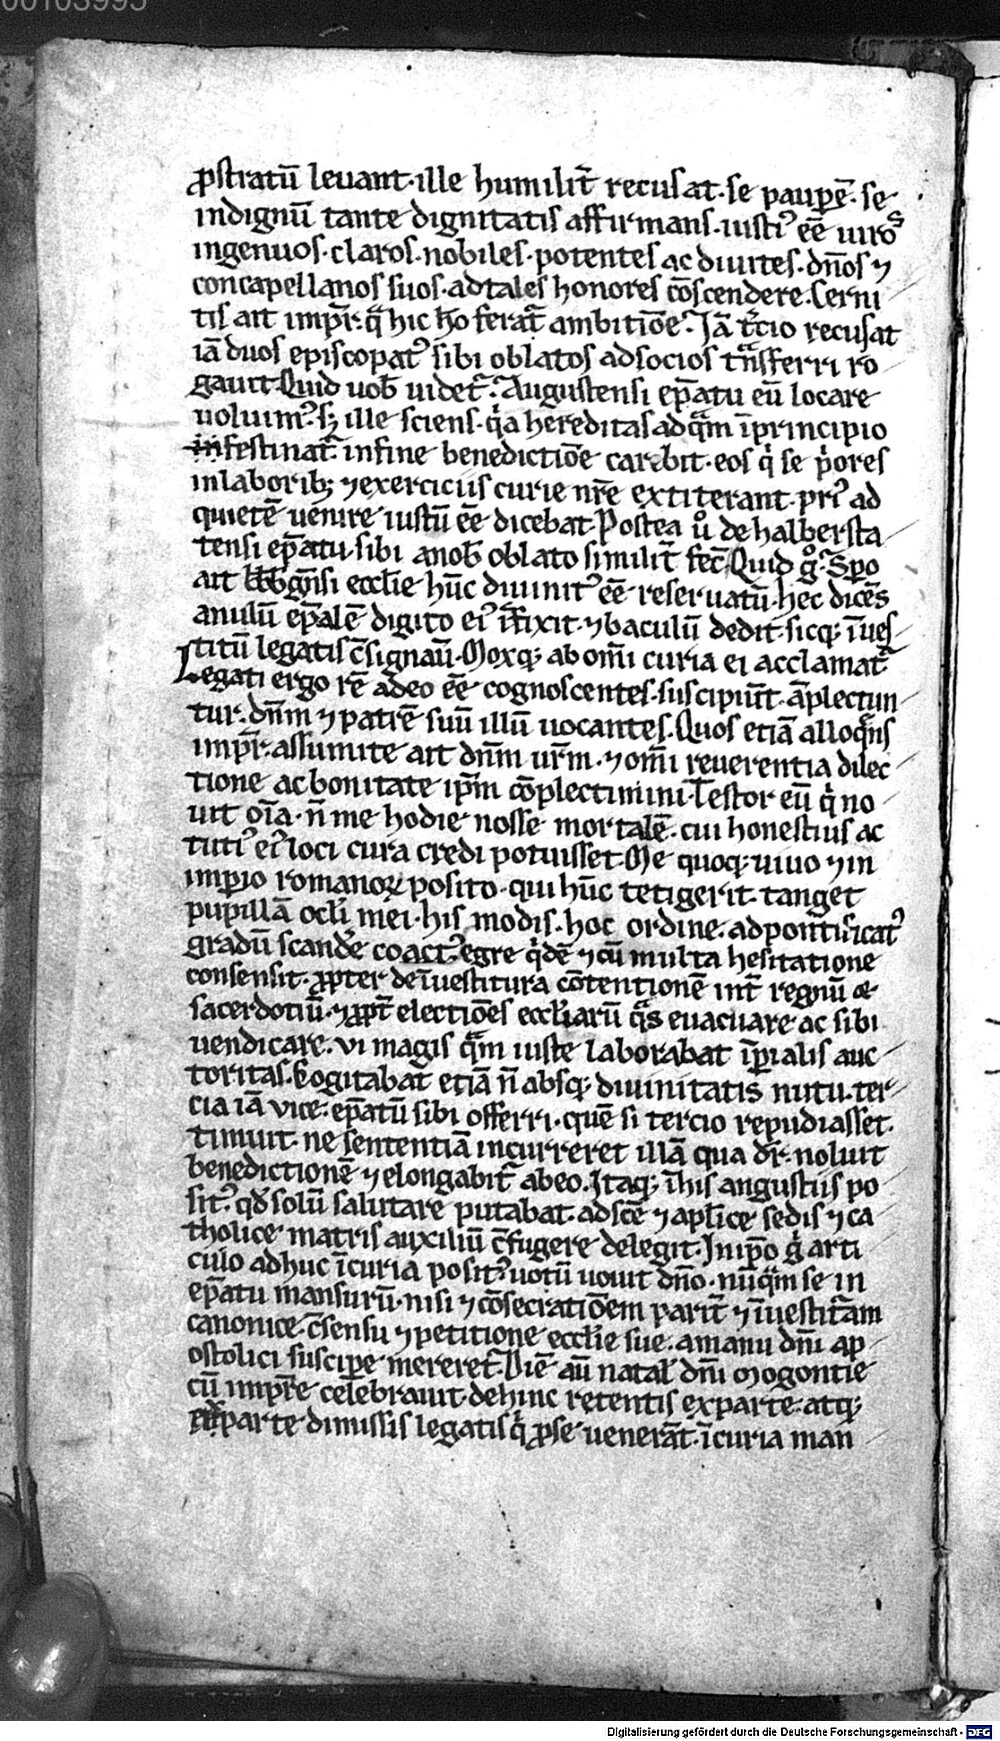 00103995
ꝓstratū leuant·ille humilit̄ recusat·se pauꝑē·se
indignū tante dignitatis affirmans·iusti᷒ eē uiros
ingenuos·claros·nobiles·potentes ac diuites·dn̄os ⁊
concapellanos suos·ad tales honores cōscendere·Cerni
tis ait impr̄·qͣ hic hō ferat᷑ ambitiōe·Iā t̄cio recusat
iā duos episcopat᷒ sibi oblatos ad socios tͣnsferri ro
gauit·Quid uob̄ uidet᷑·Augustensi ep̄atu eū locare
uoluim᷒·sꝫ ille sciens·qͥa hereditas ad qͣm ī principio
festinat᷑ in fine benedictiōe carebit·eos qͥ se pͥores
in laboribꝫ ⁊ exerciciis curie nr̄e extiterant·pri᷒ ad
quietē uenire iustū eē dicebat·Postea ů de halbersta
tensi ep̄atu·sibi a nob̄ oblato similit̄ fec̄·Quid gͦ·Sꝑo
ait bbbgn̄si eccl̄ie hūc diuinit᷒ eē reseruatū·hec dicēs
anulū ep̄alē digito ei᷒ īfixit·⁊ baculū dedit·sicqꝫ īues
titū legatis c̄signauͥ·Moxqꝫ ab om̄i curia ei acclamat᷑
Legati ergo rē a deo eē cognoscentes·suscipiūt·āplectun
tur·dn̄m ⁊ patrē suū illū uocantes·Quos etiā alloqͣns
impr̄·assumite ait dn̄m ur̄m·⁊ om̄i reuerentia dilec
tione ac bonitate ip̄m cōplectimini·Testor eū qͥ no
uit oīa·n̄ me hodie nosse mortalē·cui honestius ac
tuti᷒ ei᷒ loci cura credi potuisset·Me quoqꝫ uiuo ⁊ in
imꝑio romanoꝝ posito·qui hūc tetigerit·tanget
pupillā ocl̄i mei·his modis·hoc ordine·ad pontificat᷒
gradū scandere coact᷒·egre qͥdē ⁊ cū multa hesitatione
consensit·ꝓpter de īuestitura cōtentionē int̄ regnū &
sacerdotiū·⁊ ꝓpt̄ electiōes eccl̄iarū qͣs euacuare ac sibi
uendicare·vi magis qͣm iuste laborabat īꝑialis auc
toritas·Cogitabat etiā n̄ absqꝫ diuinitatis nutu·ter
cia iā vice·ep̄atū sibi offerri·quē si tercio repudiasset·
timuit·ne sententiā incurreret illā qua dr̄·noluit
benedictionē ⁊ elongabit᷑ ab eo·Itaqꝫ ī his angustiis po
sit᷒·qd̄ solū salutare putabat·ad sc̄e ⁊ apl̄ice sedis ⁊ ca
tholice matris auxiliū c̄fugere delegit·In ip̄o gͦ arti
culo adhuc ī curia posit᷒ uotū uouit dn̄o·nūqͣm se in
ep̄atu mansurū·nisi ⁊ cōsecratiōem parit̄ ⁊ īuestit᷑am
canonice·c̄sensu ⁊ petitione eccl̄ie sue·a manu dn̄i ap
ostolici susciꝑe mereret᷑·Diē aū natal̄ dn̄i mogontie
cū impr̄e celebrauit·dehinc retentis ex parte·atqꝫ
ex parte dimissis legatis qͥ ꝓ se uenerāt·ī curia man

Digitalisierung gefördert durch die Deutsche Forschungsgemeinschaft - DFG